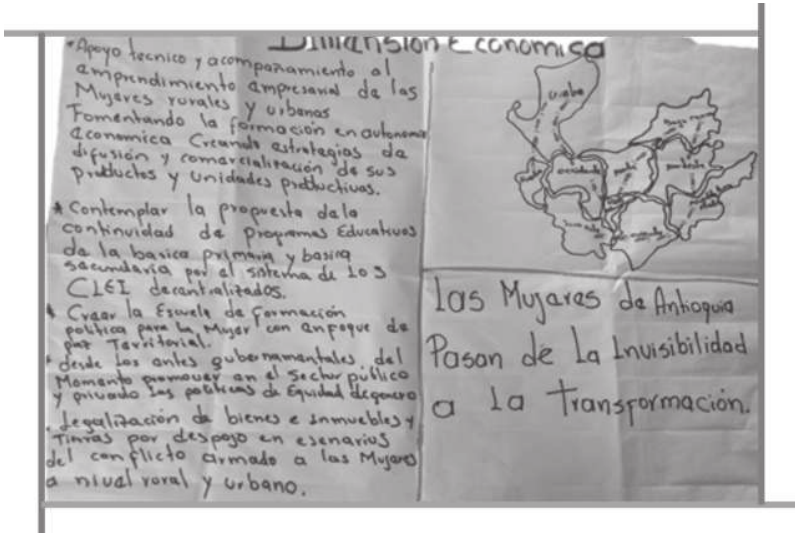 Dimensión Economica
* Apoyo tecnico y acompañamiento al
emprendimiento empresarial de las
Mujeres rurales y urbanas
Fomentando la formación en autonomia
economica Creando estrategias de
difusión y comercialización de sus
productos y Unidades productivas.
* Contemplar la propuesta de la
continuidad de programas Educativos
de la basica primaria y basica
secundaria por el sistema de los
CLEI decentralizados.
* Crear la Escuela de formación
politica para la Mujer con enfoque de
paz Territorial.
* desde los entes gubernamentales del
Momento promover en el Sector público
y privado las politicas de Equidad de genero
. Legalización de bienes e inmuebles y
Tierras por despojo en esenarios
del conflicto armado a las Mujeres
a nivel roral y urbano.
uraba
occidente
norte
nordeste
Las Mujeres de Antioquia
Pasan de La Invisibilidad
a la transformación.